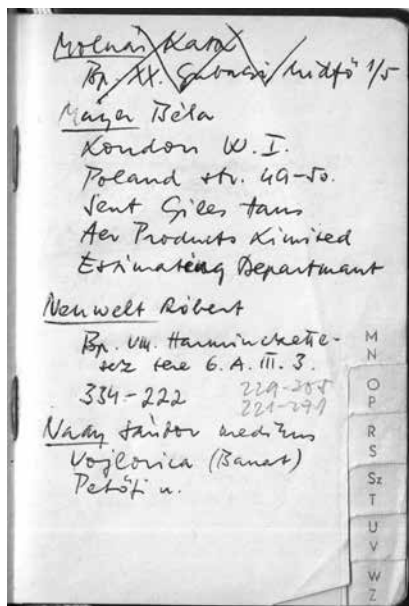 Molnár Kata
Bp. XX. Gubacsi hídfő 1/5
Mayer Béla
London W. I.
Poland str. 49-50.
Sent Giles Haus
Aer Products Limited
Estimateing Departmant
Neuwelt Róbert
Bp. VIII. Harminckette-
sek tere 6. A. III. 3.
334-222 229-205
221-291
Nagy Sándor medikus
Vojlovica (Banat)
Petőfi u.
M
N
O
P
R
S
Sz
T
U
V
W
Z